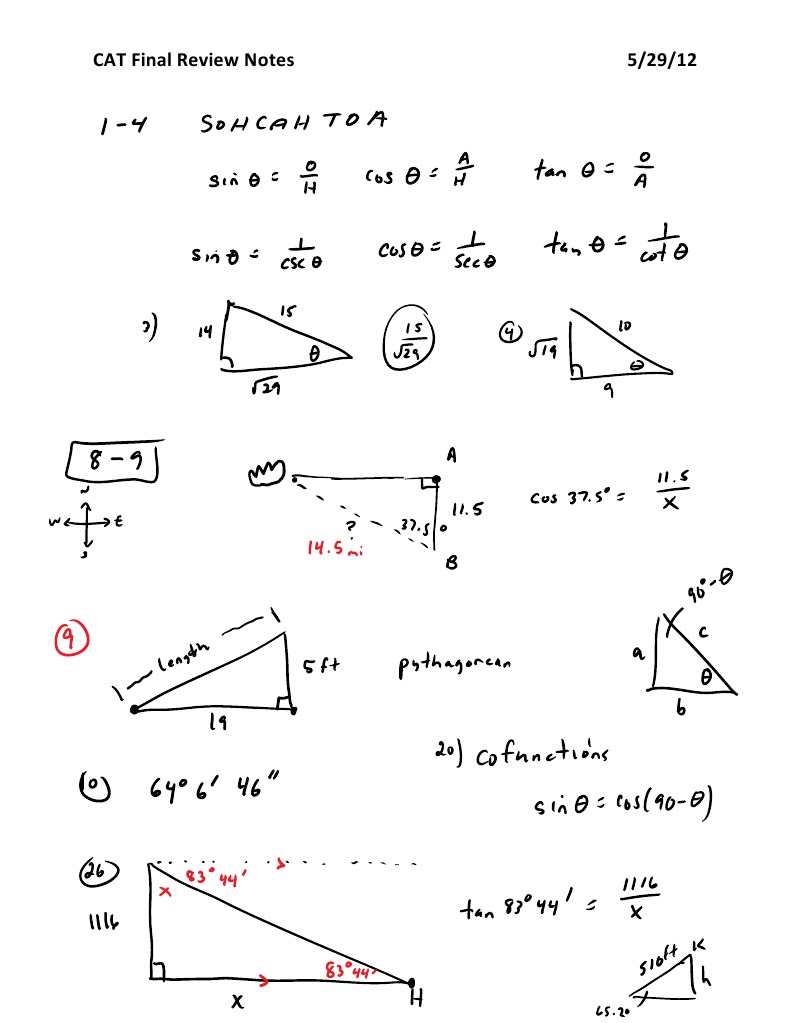 CAT Final Review Notes 5/29/12
1-4 SOHCAHTOA
sin θ = O/H cos θ = A/H tan θ = O/A
sin θ = 1/csc θ cos θ = 1/sec θ tan θ = 1/cot θ
3) 14 15 θ √29 15/√29 4 √19 10 θ 9
8-9
N
W E
S
A
11.5
37.5°
?
14.5 mi
B
cos 37.5° = 11.5/x
9 length 5 ft 19 pythagorean
90°-θ
a c
θ
b
10 64° 6' 46"
20) Cofunctions
sin θ = cos(90-θ)
26 83°44'
x
1116
83°44'
x H
tan 83°44' = 1116/x
510ft K
h
65.20